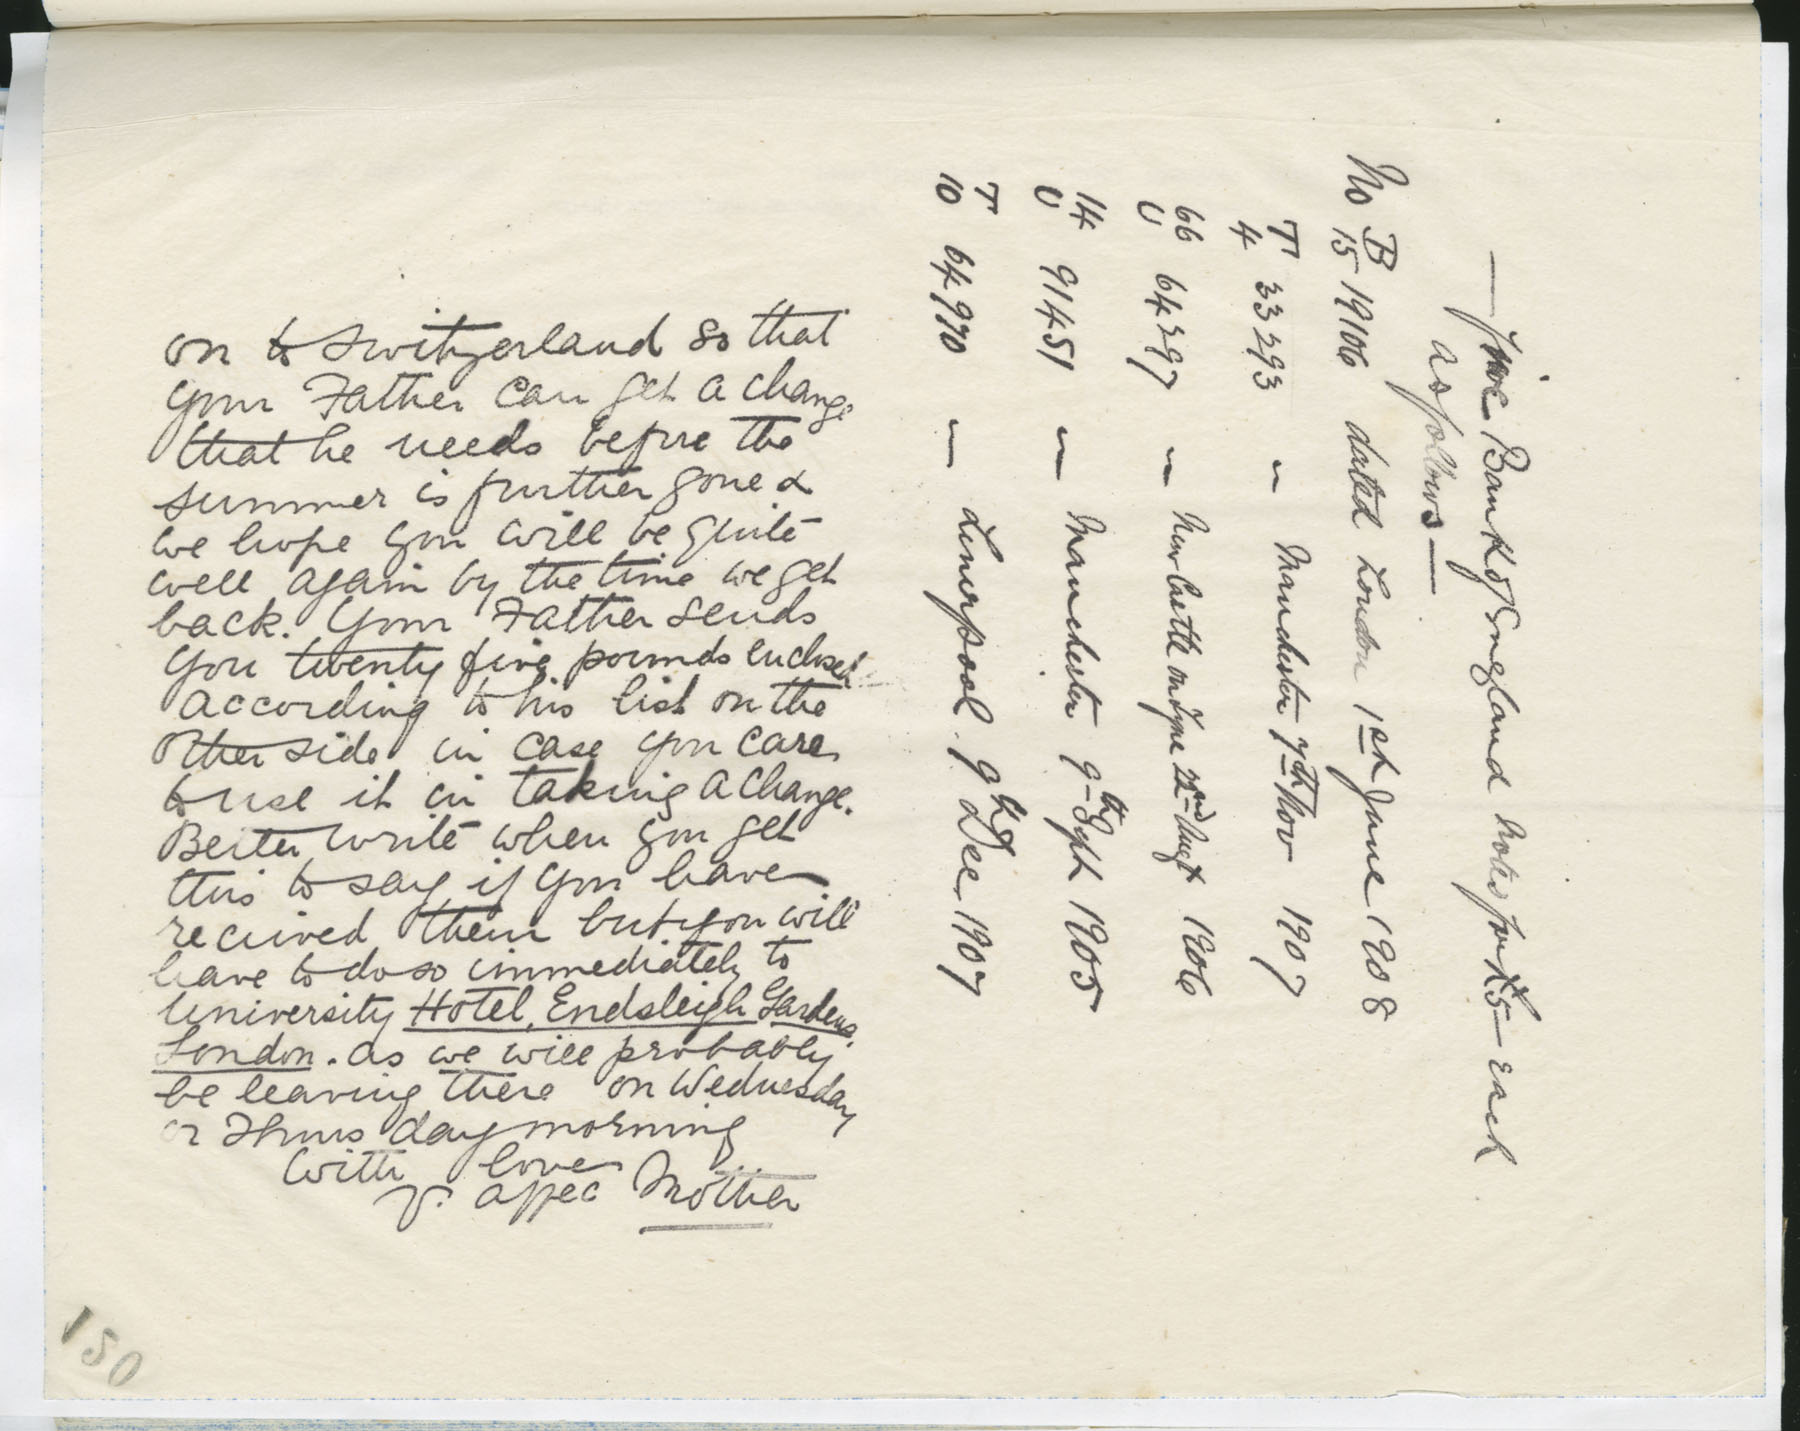 on to Switzerland so that
your Father can get a change
that he needs before the
summer is further gone &
we hope you will be quite
well again by the time we get
back. Your Father sends
you twenty five pounds enclosed
according to his list on the
other side in case you care
to use it in taking a change.
Better write when you get
this to say if you have
recieved them but you will
have to do so immediately to
University Hotel, Endsleigh Gardens,
London. as we will probably
be leaving there on Wednesday
or Thursday morning
With love
yr. affec Mother
— Five Bank of England notes for £5 — each
as follows —
No B 15 19106 dated London 1st June 1908
T 4 33293 " Manchester 7th Nov 1907
66 U 64297 " New Castle on Tyne 22nd Augt 1906
14 U 91451 " Manchester 9th Sept 1905
T 10 64970 " Liverpool 9th Dec 1907
150